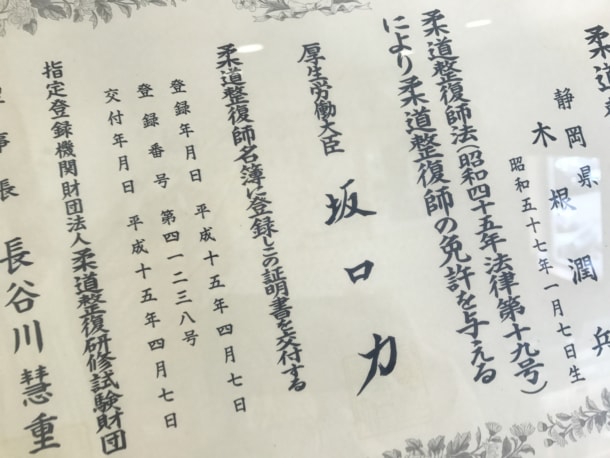 柔道
静岡県
木根潤兵
昭和五十七年一月七日生
柔道整復師法(昭和四十五年法律第十九号)
により柔道整復師の免許を与える
厚生労働大臣 坂口力
柔道整復師名簿に登録しこの証明書を交付する
登録年月日 平成十五年四月七日
登録番号 第四一二三八号
交付年月日 平成十五年四月七日
指定登録機関財団法人柔道整復研修試験財団
理事長 長谷川慧重